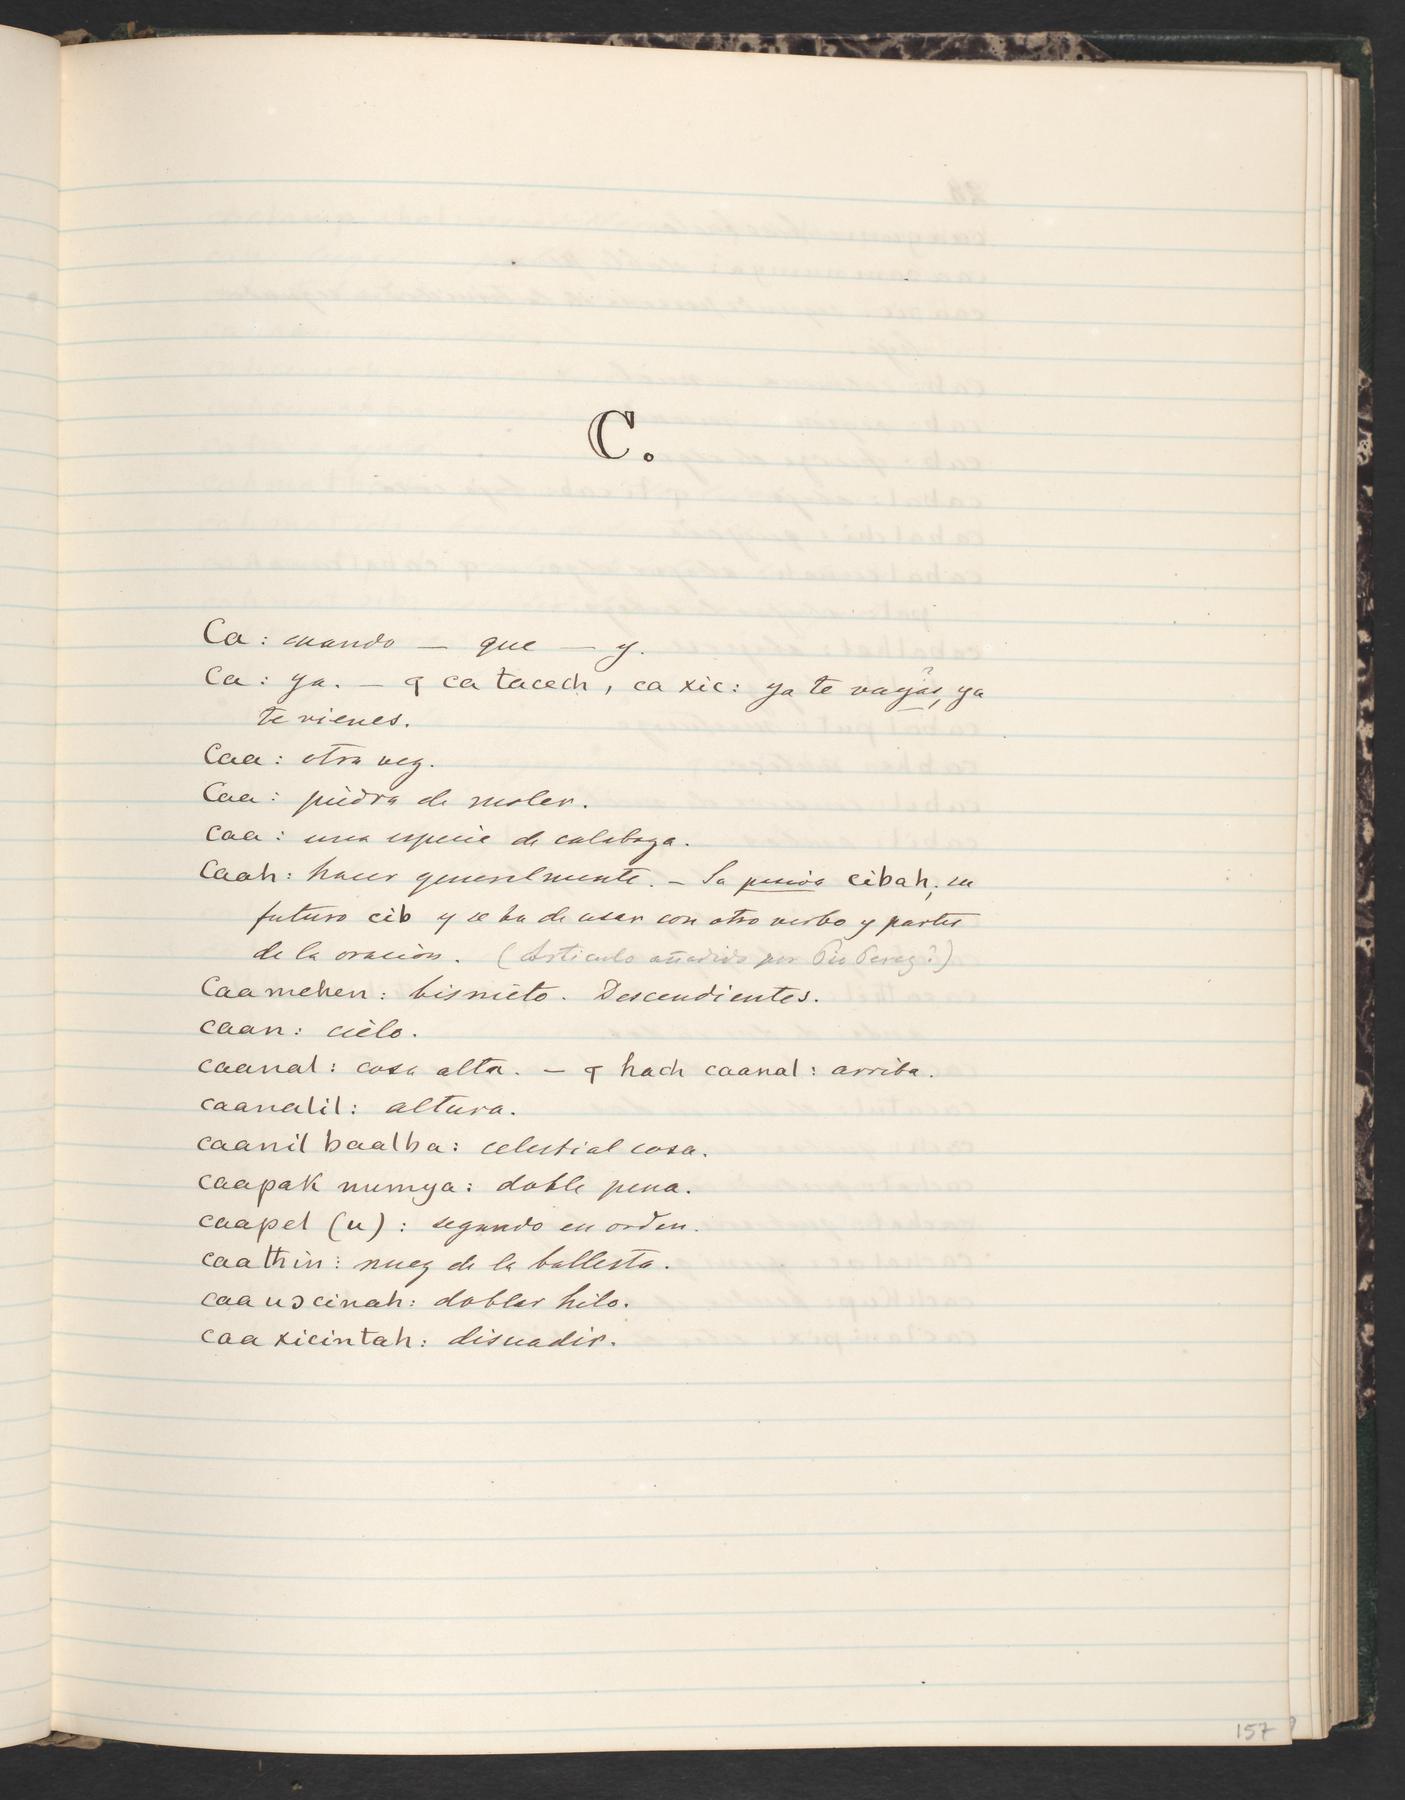 C.
Ca: cuando — que — y.
Ca: ya. — ꝗ ca tacech, ca xic: ya te vayas, ya
te vienes.
Caa: otra vez.
Caa: piedra de moler.
caa: una especie de calabaza.
Caah: hacer generalmente. — Su pasiva cibah; su
futuro cib y se ha de usar con otro verbo y partes
de la oracion. (Articulo añadido por Pio Perez?)
Caamehen: bisnieto. Descendientes.
caan: cielo.
caanal: cosa alta. — ꝗ hach caanal: arriba.
caanalil: altura.
caanil baalba: celestial cosa.
caapak numya: doble pena.
caapel (u): segundo en orden.
caathin: nuez de la ballesta.
caa uɔcinah: doblar hilo.
caa xicintah: disuadir.
157